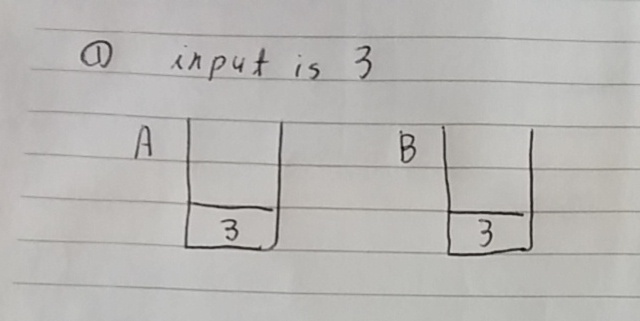 ① input is 3
A B
3 3